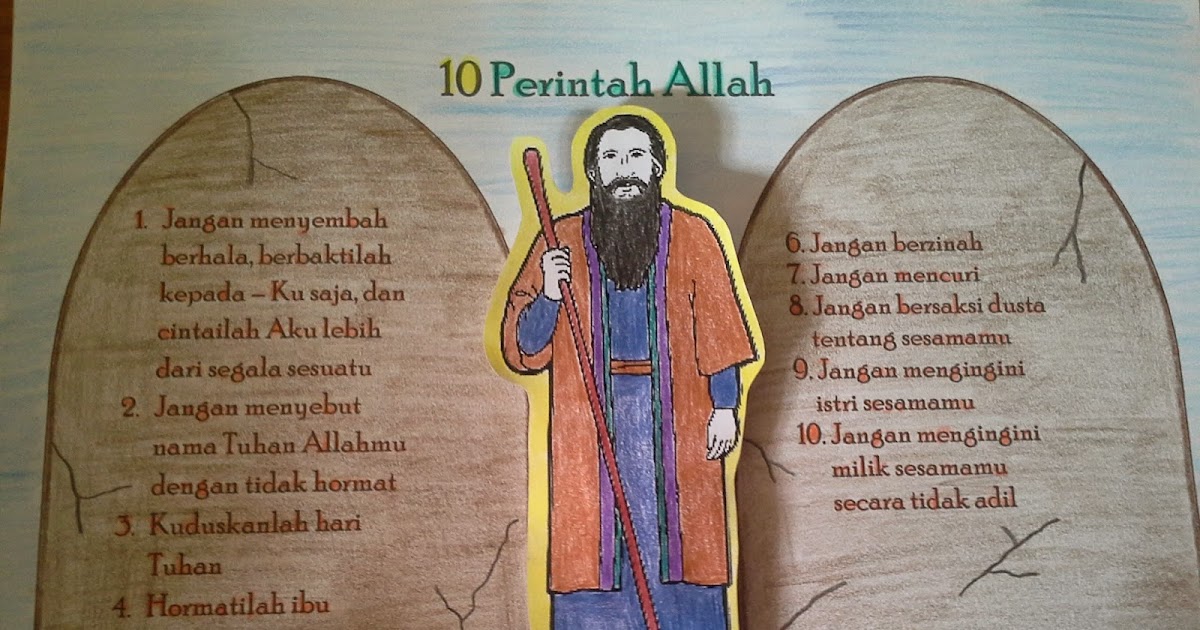 10 Perintah Allah
1. Jangan menyembah
berhala, berbaktilah
kepada – Ku saja, dan
cintailah Aku lebih
dari segala sesuatu
2. Jangan menyebut
nama Tuhan Allahmu
dengan tidak hormat
3. Kuduskanlah hari
Tuhan
4. Hormatilah ibu
6. Jangan berzinah
7. Jangan mencuri
8. Jangan bersaksi dusta
tentang sesamamu
9. Jangan mengingini
istri sesamamu
10. Jangan mengingini
milik sesamamu
secara tidak adil